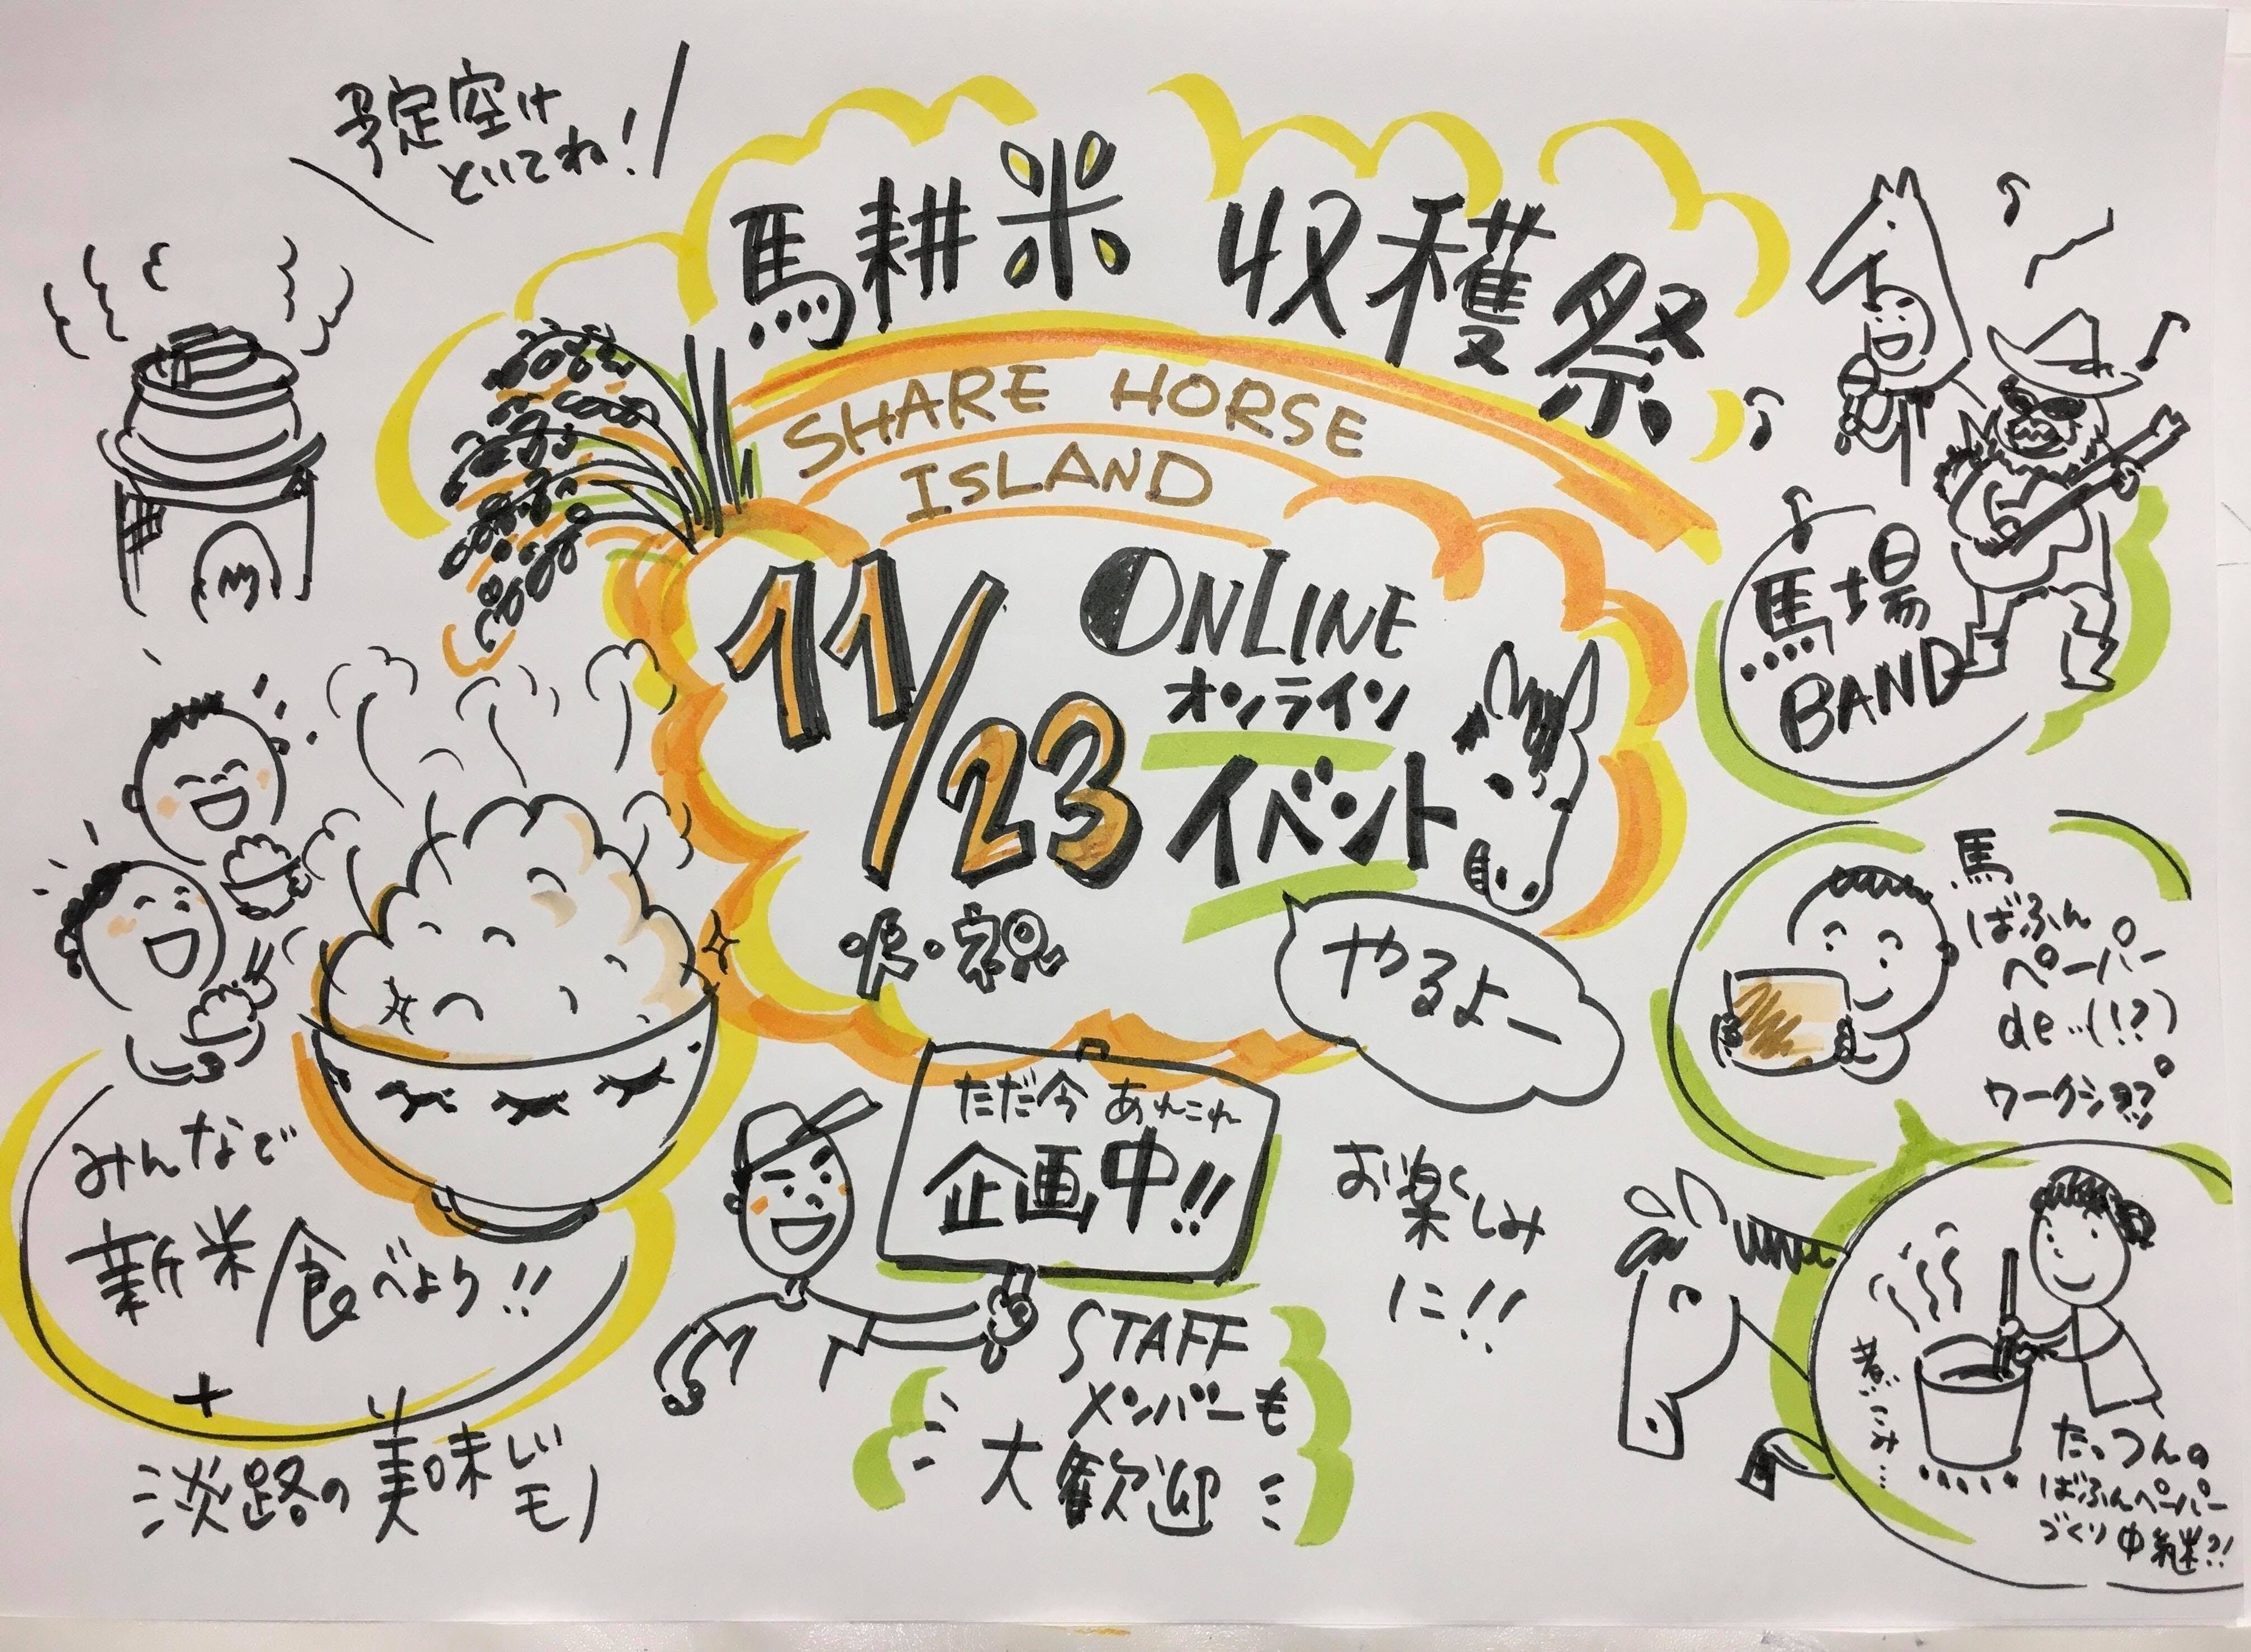 予定空け
といてね!
馬耕米 収穫祭
SHARE HORSE
ISLAND
11/23
ONLINE
オンライン
イベント
・祝
やるよー
馬場
BAND
馬
ばふん
ペーパー
de…(!?)
ワークショップ
みんなで
新米食べよう!!
+
淡路の美味しい
モノ
ただ今 あれこれ
企画中!!
お楽しみ
に!!
STAFF
メンバーも
大歓迎
煮こみ…
たっつんの
ばふんペーパー
づくり中継?!